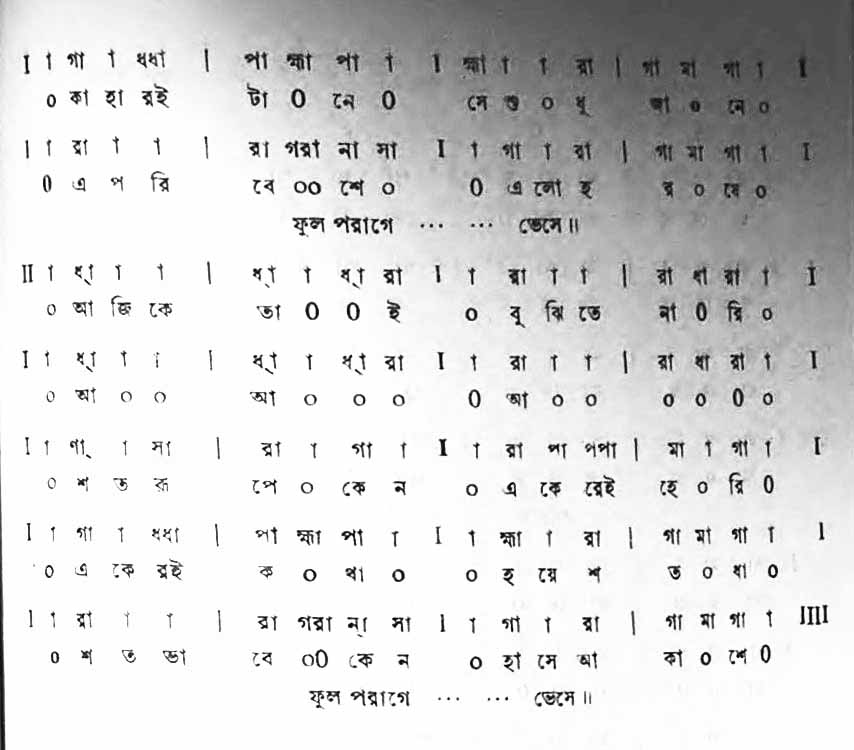 I া গা া ধধা | পা হ্মা পা া I হ্মা া া রা | গা মা গা া I
০ কা হা রই টা ০ নে ০ সে শু ০ ধু জা ০ নে ০
I া রা া া | রা গরা না সা I া গা া রা | গা মা গা া I
০ এ প রি বে ০০ শে ০ ০ এ লো হ র ০ ষে ০
ফুল পরাগে ... ... ভেসে॥
II া ধ্‌া া া | ধ্‌া া ধ্‌া রা I া রা া া | রা ধা রা া I
০ আ জি কে তা ০ ০ ই ০ বু ঝি তে না ০ রি ০
I া ধ্‌া া া | ধ্‌া া ধ্‌া রা I া রা া া | রা ধা রা া I
০ আ ০ ০ আ ০ ০ ০ ০ আ ০ ০ ০ ০ ০ ০
I া ণা্‌ া সা | রা া গা া I া রা পা পপা | মা া গা া I
০ শ ত রূ পে ০ কে ন ০ এ কে রেই হে ০ রি ০
I া গা া ধধা | পা হ্মা পা া I া হ্মা া রা | গা মা গা া I
০ এ কে রই ক ০ থা ০ ০ হ য়ে শ ত ০ ধা ০
I া রা া া | রা গরা ন্‌া সা I া গা া রা | গা মা গা া IIII
০ শ ত ভা বে ০০ কে ন ০ হা সে আ কা ০ শে ০
ফুল পরাগে ... ... ভেসে॥